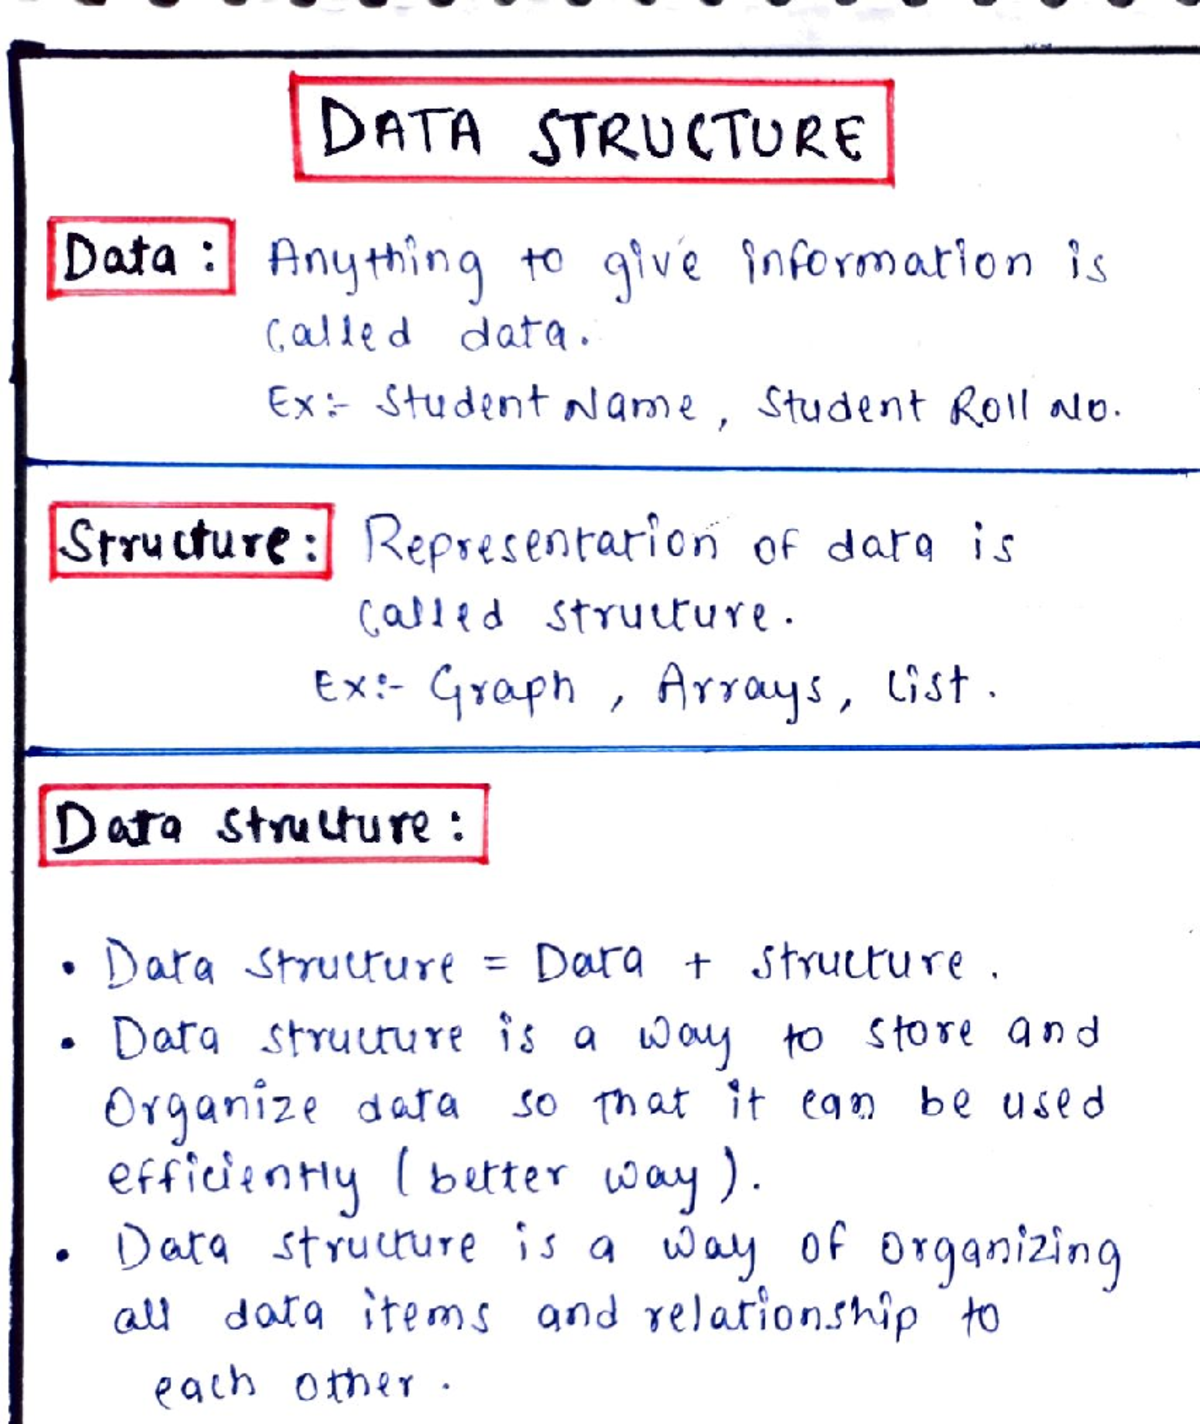 DATA STRUCTURE
Data : Anything to give information is
called data.
Ex:- Student Name, Student Roll No.
Structure : Representation of data is
called structure.
Ex:- Graph, Arrays, List.
Data structure :
• Data structure = Data + structure.
• Data structure is a way to store and
organize data so that it can be used
efficiently (better way).
• Data structure is a way of organizing
all data items and relationship to
each other.